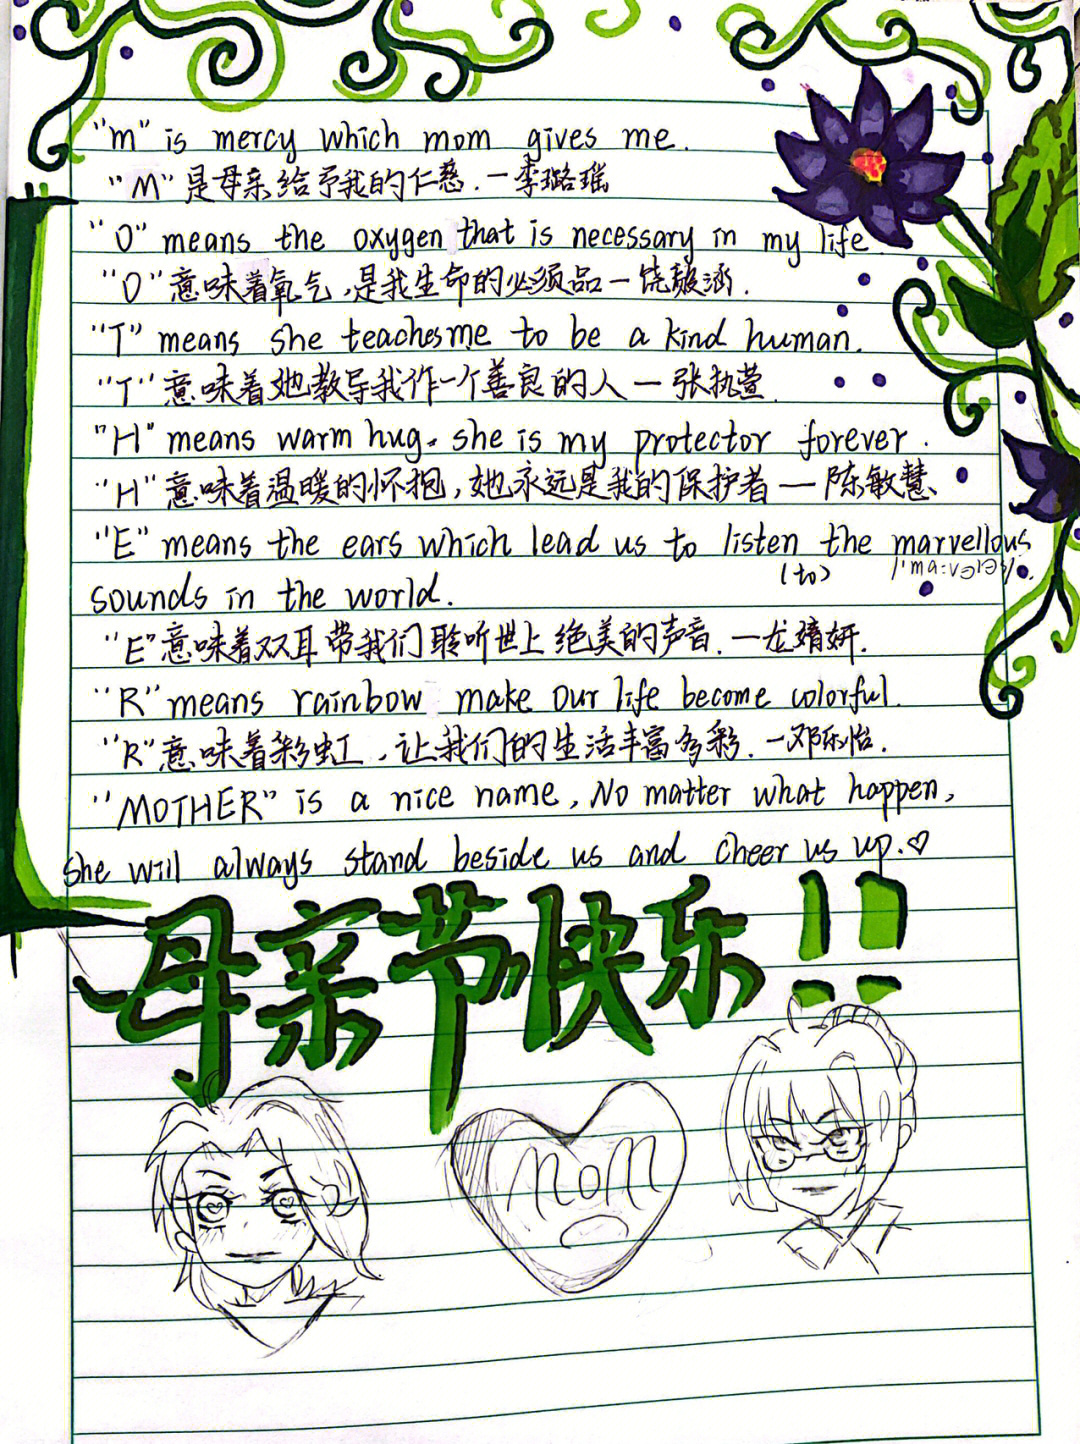 "m" is mercy which mom gives me.
"M"是母亲给予我的仁慈.—李璐瑶
"O" means the oxygen that is necessary in my life
"O"意味着氧气,是我生命的必须品—饶懿涵.
"T" means she teaches me to be a kind human.
"T"意味着她教导我作一个善良的人—张执萱
"H" means warm hug. she is my protector forever.
"H"意味着温暖的怀抱,她永远是我的保护者—陈敏慧、
"E" means the ears which lead us to listen the marvellous
(to) /'ma:vələs/
sounds in the world.
"E"意味着双耳带我们聆听世上绝美的声音.—龙婧妍.
"R" means rainbow make our life become colorful.
"R"意味着彩虹,让我们的生活丰富多彩.—邓乐怡.
"MOTHER" is a nice name, No matter what happen,
she will always stand beside us and cheer us up.♡
母亲节快乐!!
MOM